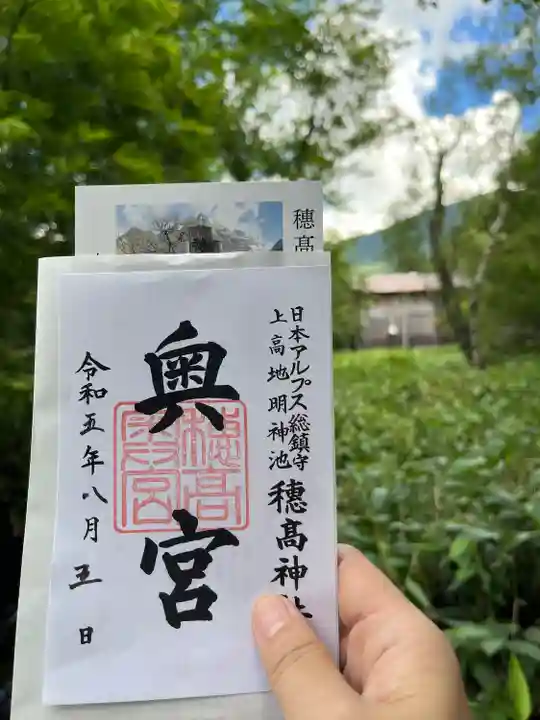 穂高
日本アルプス総鎮守
上高地明神池
穂髙神社
奥宮
穂高
奥宮
令和五年八月五日